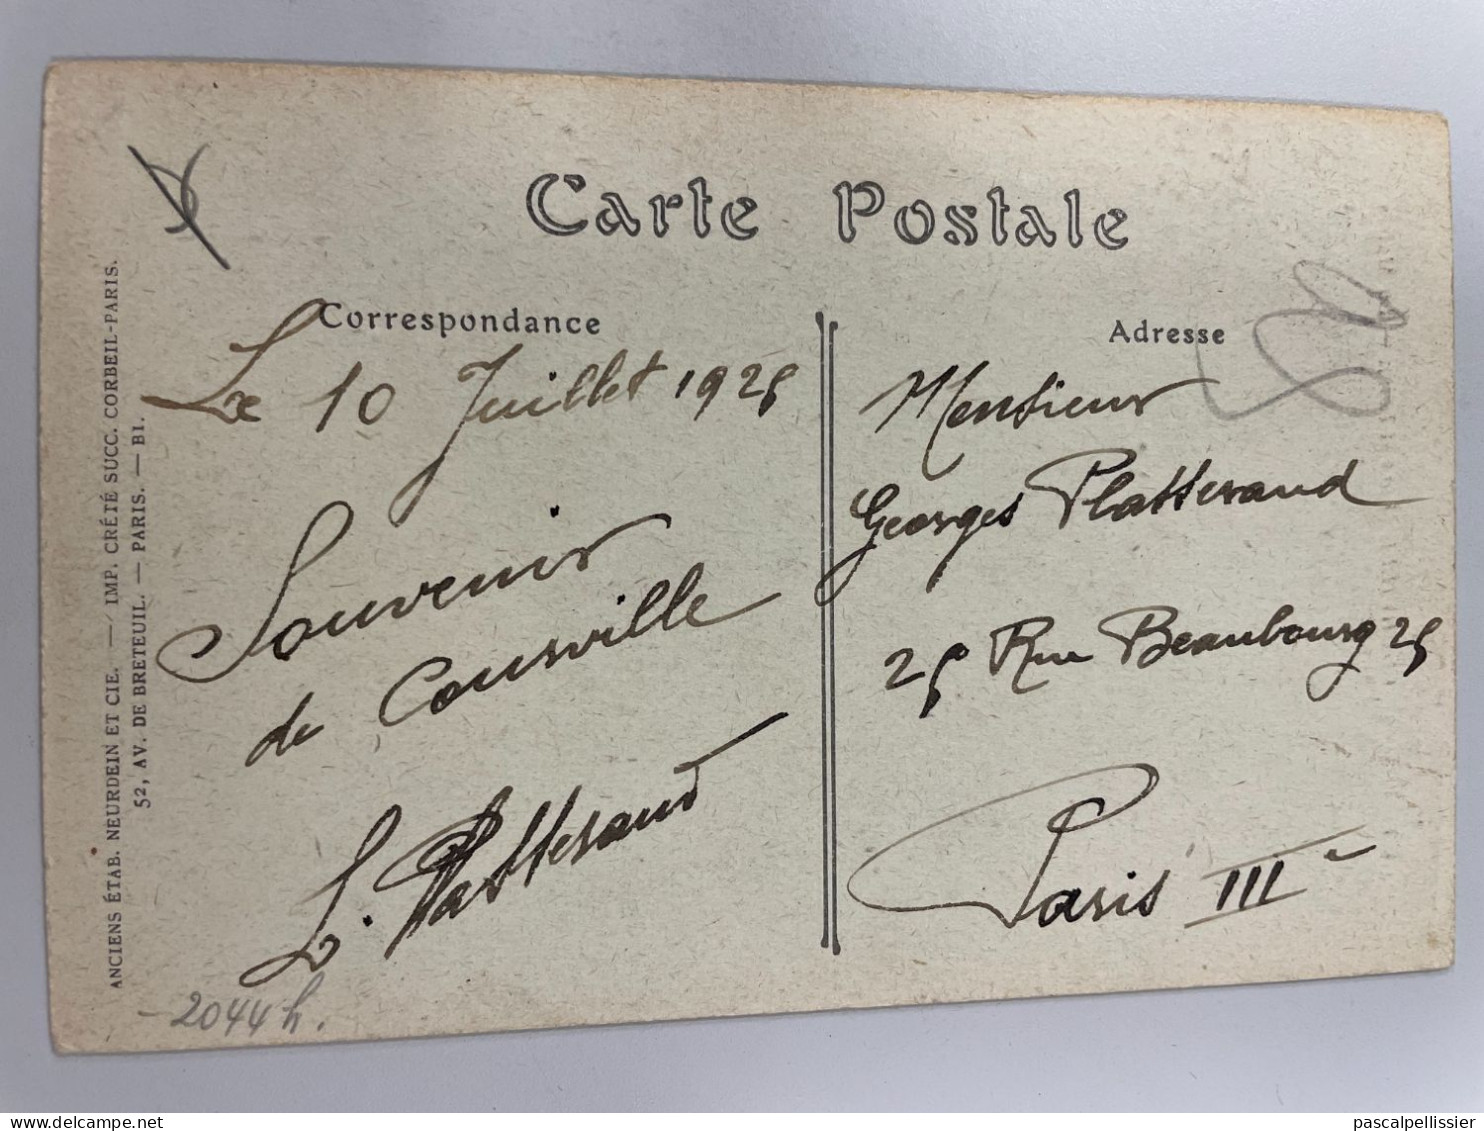 Carte Postale
Correspondance
Le 10 Juillet 1925
Souvenir
de Courville
L. Platterand
2044 h.
Adresse
Monsieur
Georges Platterand
25 Rue Beaubourg 25
Paris IIIe
ANCIENS ÉTAB. NEURDEIN ET CIE. — IMP. CRÉTÉ SUCC. CORBEIL-PARIS.
52, AV. DE BRETEUIL. — PARIS. — BI.
pascalpellissier